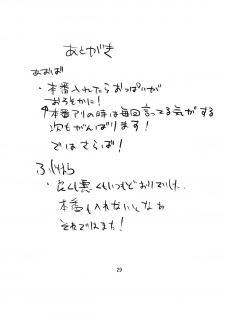 あとがき
あおば
・本番入れたらおっぱいが
おろそかに!
本番アリの時は毎回言ってる気がする
次もがんばります!
ではさらば!
・良くも悪くもいつもどおりでいけ..
本番も入れないとなぁ
それではまた!
29